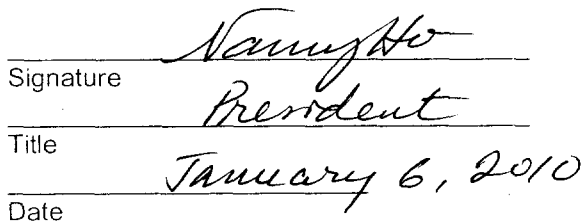 Nancy Ho
Signature
President
Title
January 6, 2010
Date